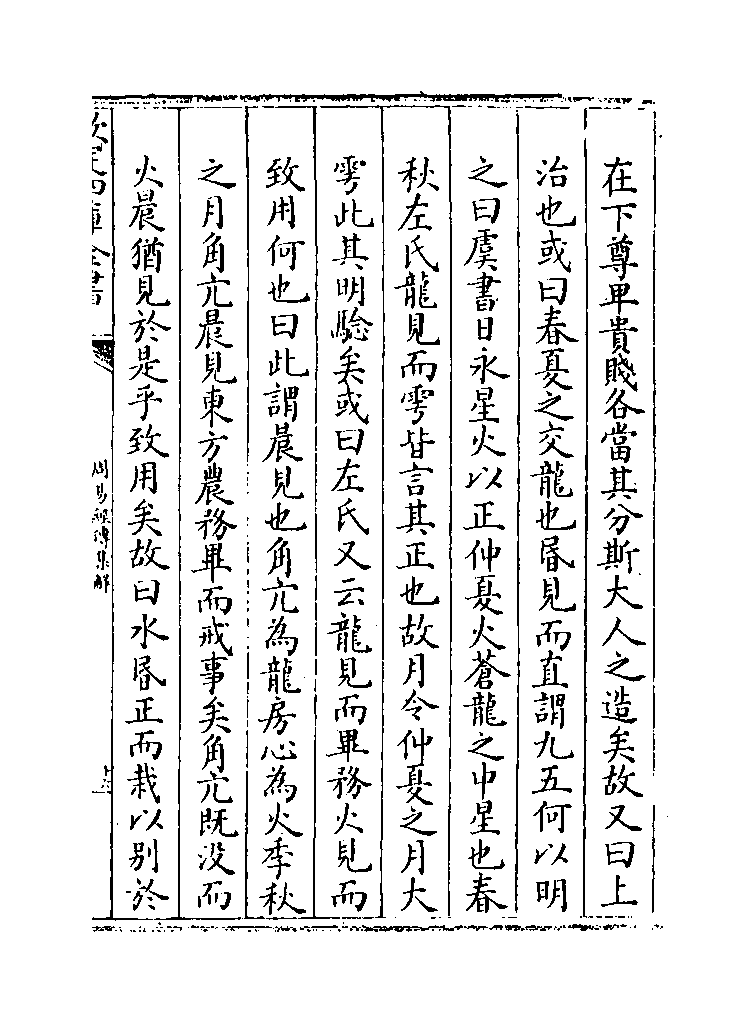 在下尊卑貴賤各當其分斯大人之造矣故又曰上
治也或曰春夏之交龍也昬見而直謂九五何以明
之曰虞書日永星火以正仲夏火蒼龍之中星也春
秋左氏龍見而雩皆言其正也故月令仲夏之月大
雩此其明驗矣或曰左氏又云龍見而畢務火見而
致用何也曰此謂晨見也角亢為龍房心為火季秋
之月角亢晨見東方農務畢而戒事矣角亢既没而
火晨猶見於是乎致用矣故曰水昬正而栽以别於
欽定四庫全書
周易經傳集解